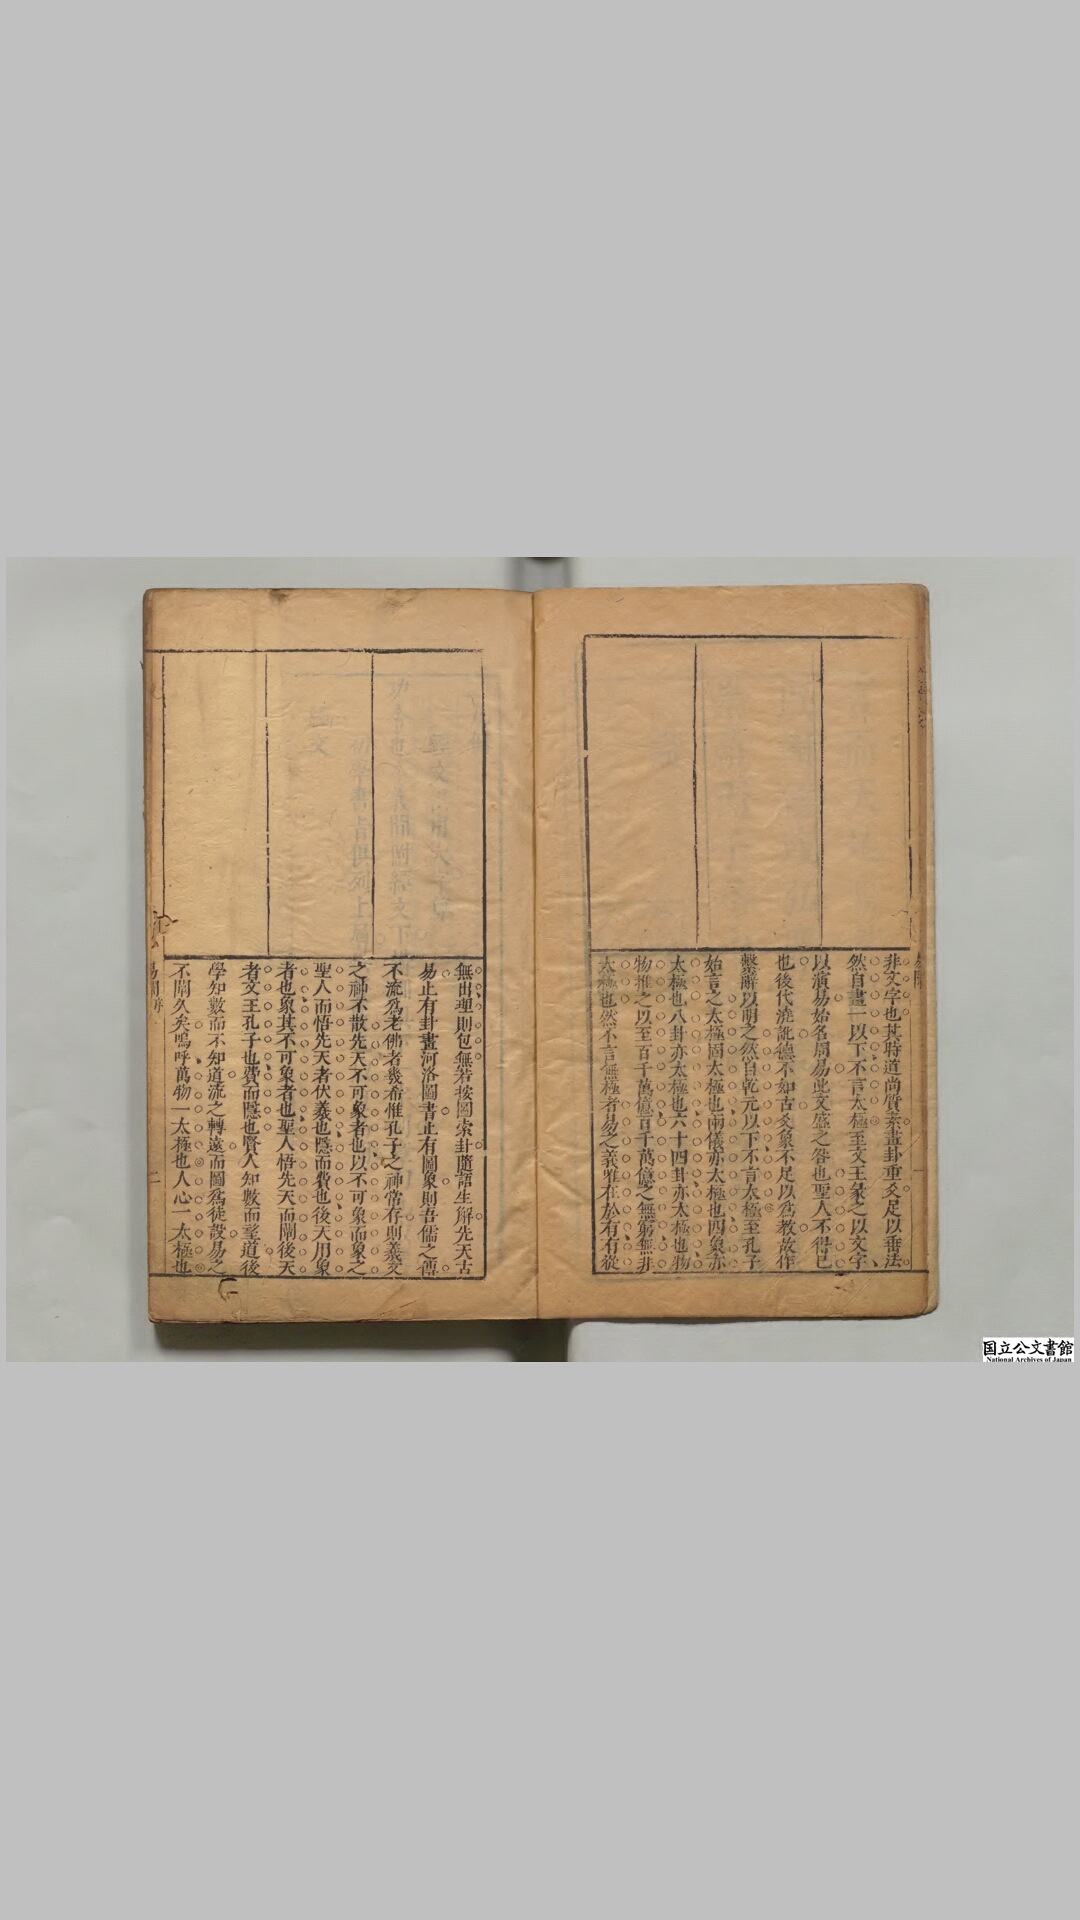 非文字也其時道尚質素畫卦重爻足以垂法
然自畫一以下不言太極至文王彖之以文字
以演易始名周易此文盛之咎也聖人不得已
也後代澆訛德不如古爻象不足以爲教故作
繫辭以明之然自乾元以下不言太極至孔子
始言之太極固太極也兩儀亦太極也四象亦
太極也八卦亦太極也六十四卦亦太極也物
物推之以至百千萬億百千萬億之無窮無非
太極也然不言無極者易之義雅在於有有從
無出理則包無若按圖索卦隨語生解先天古
易止有卦畫河洛圖書止有圖象則吾儒之傳
不流爲老佛者幾希惟孔子之神常存則羲文
之神不散先天不可象者也以不可象而象之
聖人而悟先天者伏羲也隱而費也後天用象
者也象其不可象者也聖人悟先天而闡後天
者文王孔子也費而隱也賢人知數而至道後
學知數而不知道流之轉遠而圖爲徒設易之
不闡久矣嗚呼萬物一太極也人心一太極也
二
国立公文書館
National Archives of Japan